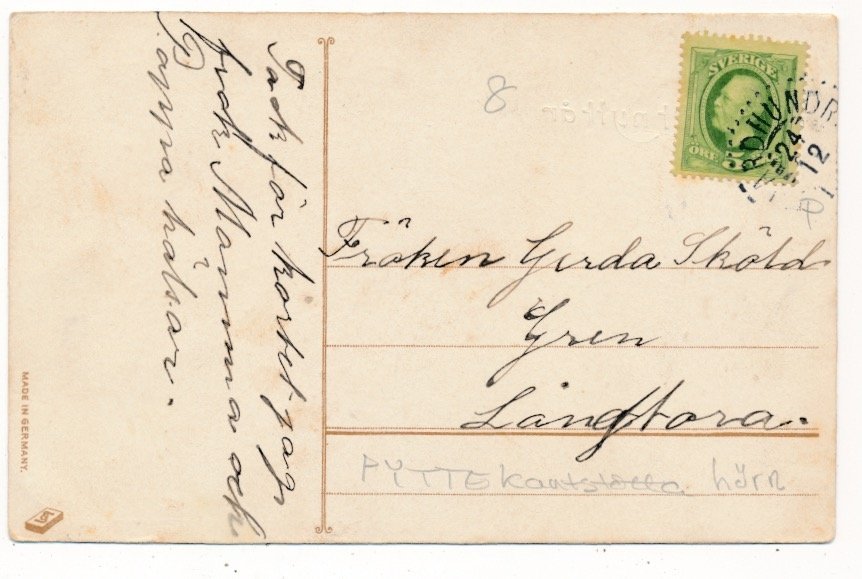 Tack för kortet jag
fick Mamma och
Pappa hälsar.
MADE IN GERMANY.
8
t nytt år
SVERIGE
ÖRE 5
24
12
Fröken Gerda Sköld
Gren
Långtora.
PYTTE kantstötta hörn